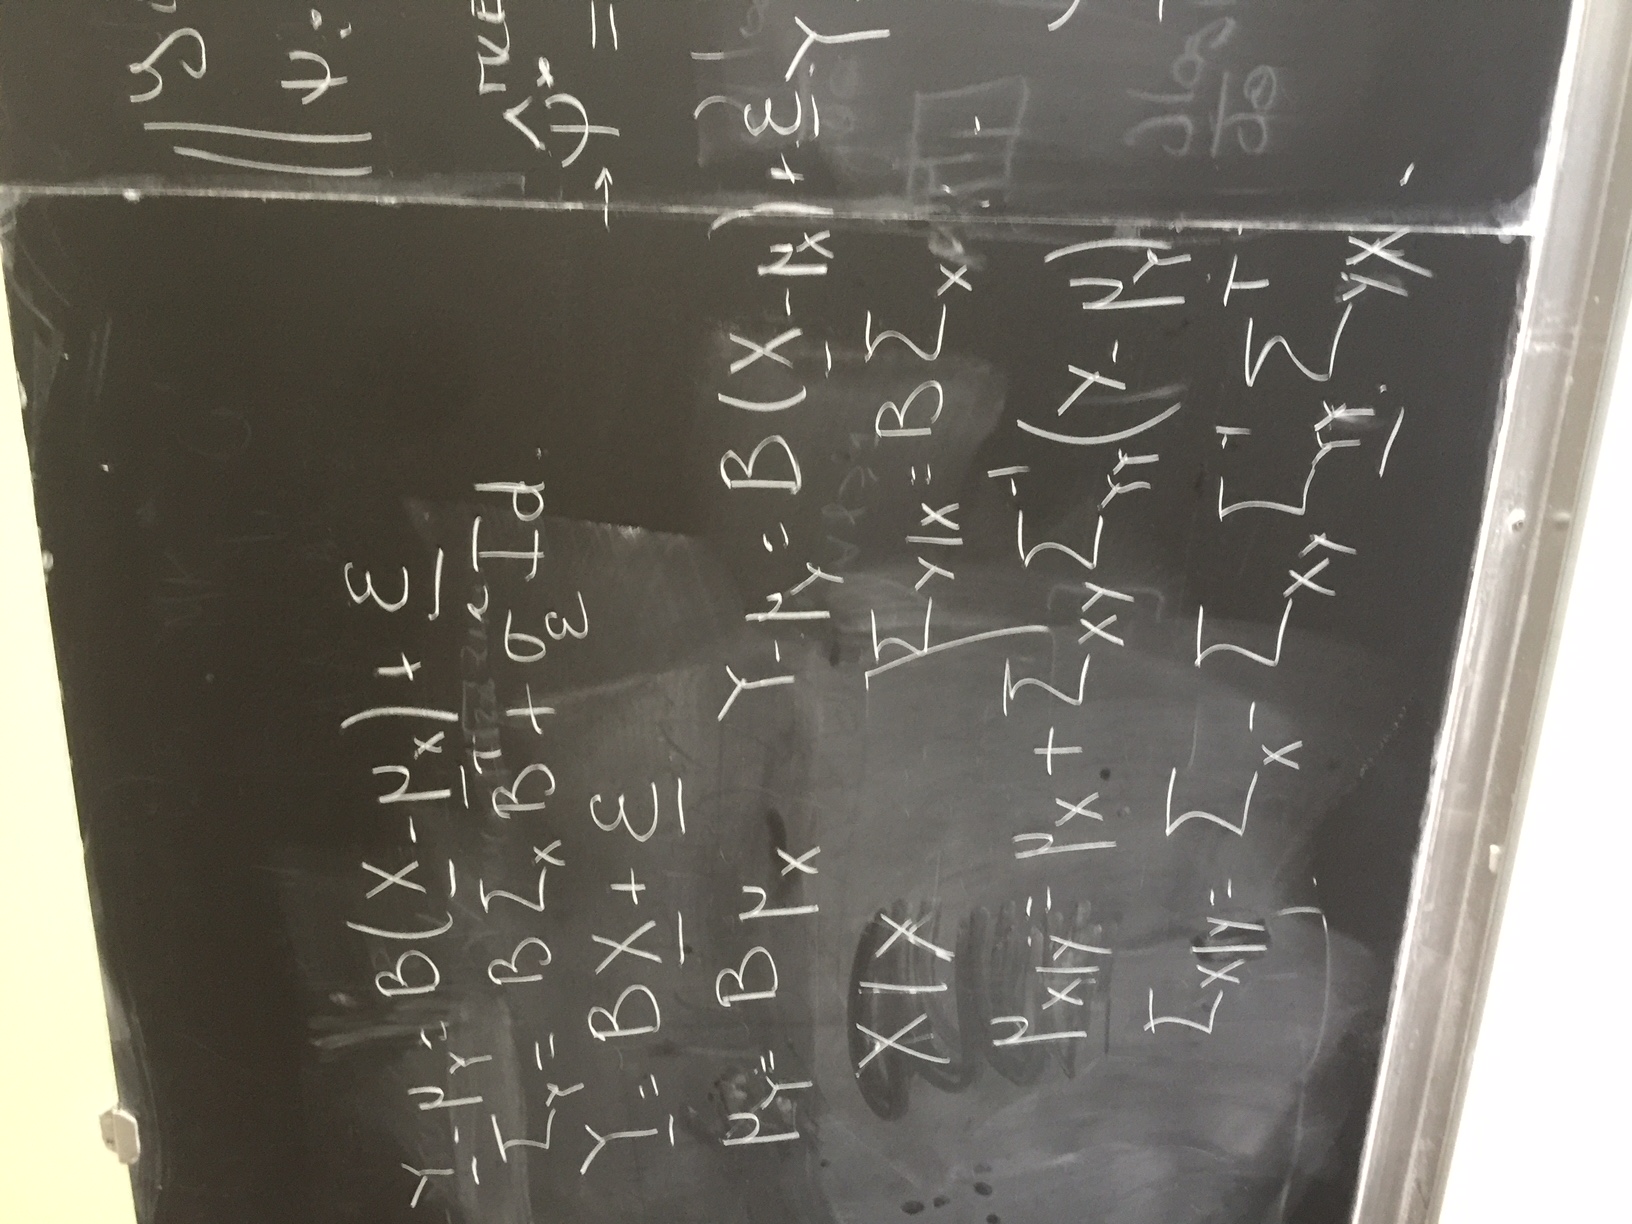 Y - μ_Y = B(X - μ_X) + ε
Σ_Y = B Σ_X B^T + σ_ε^2 Id.
Y = BX + ε
μ_Y = B μ_X
Y - μ_Y = B(X - μ_X) + ε
X|y
Σ_{Y|X} = B Σ_X
μ_{X|y} = μ_X + Σ_{XY} Σ_{YY}^{-1} (y - μ_Y)
Σ_{X|y} = Σ_X - Σ_{XY} Σ_{YY}^{-1} Σ_{YX}^T.
y
ψ:
→ ψ̂ =
Y